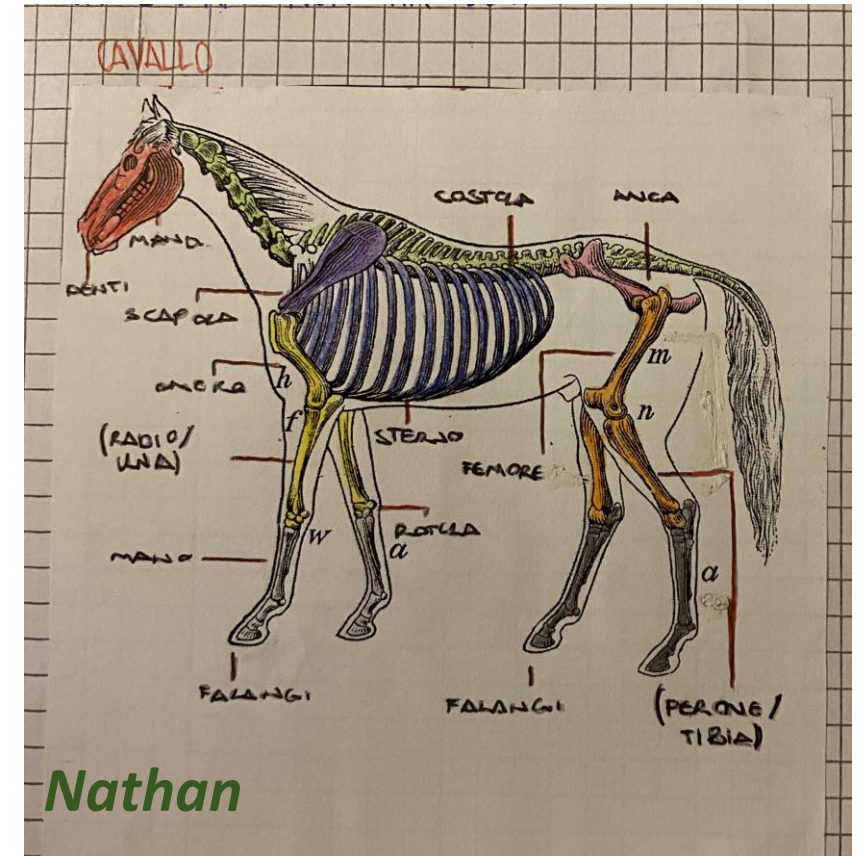 CAVALLO
COSTOLA
ANCA
MAND.
DENTI
SCAPOLA
OMERO
h
m
f
n
(RADIO/
ULNA)
STERNO
FEMORE
ROTULA
w
a
MANO
a
FALANGI
FALANGI
(PERONE/
TIBIA)
Nathan